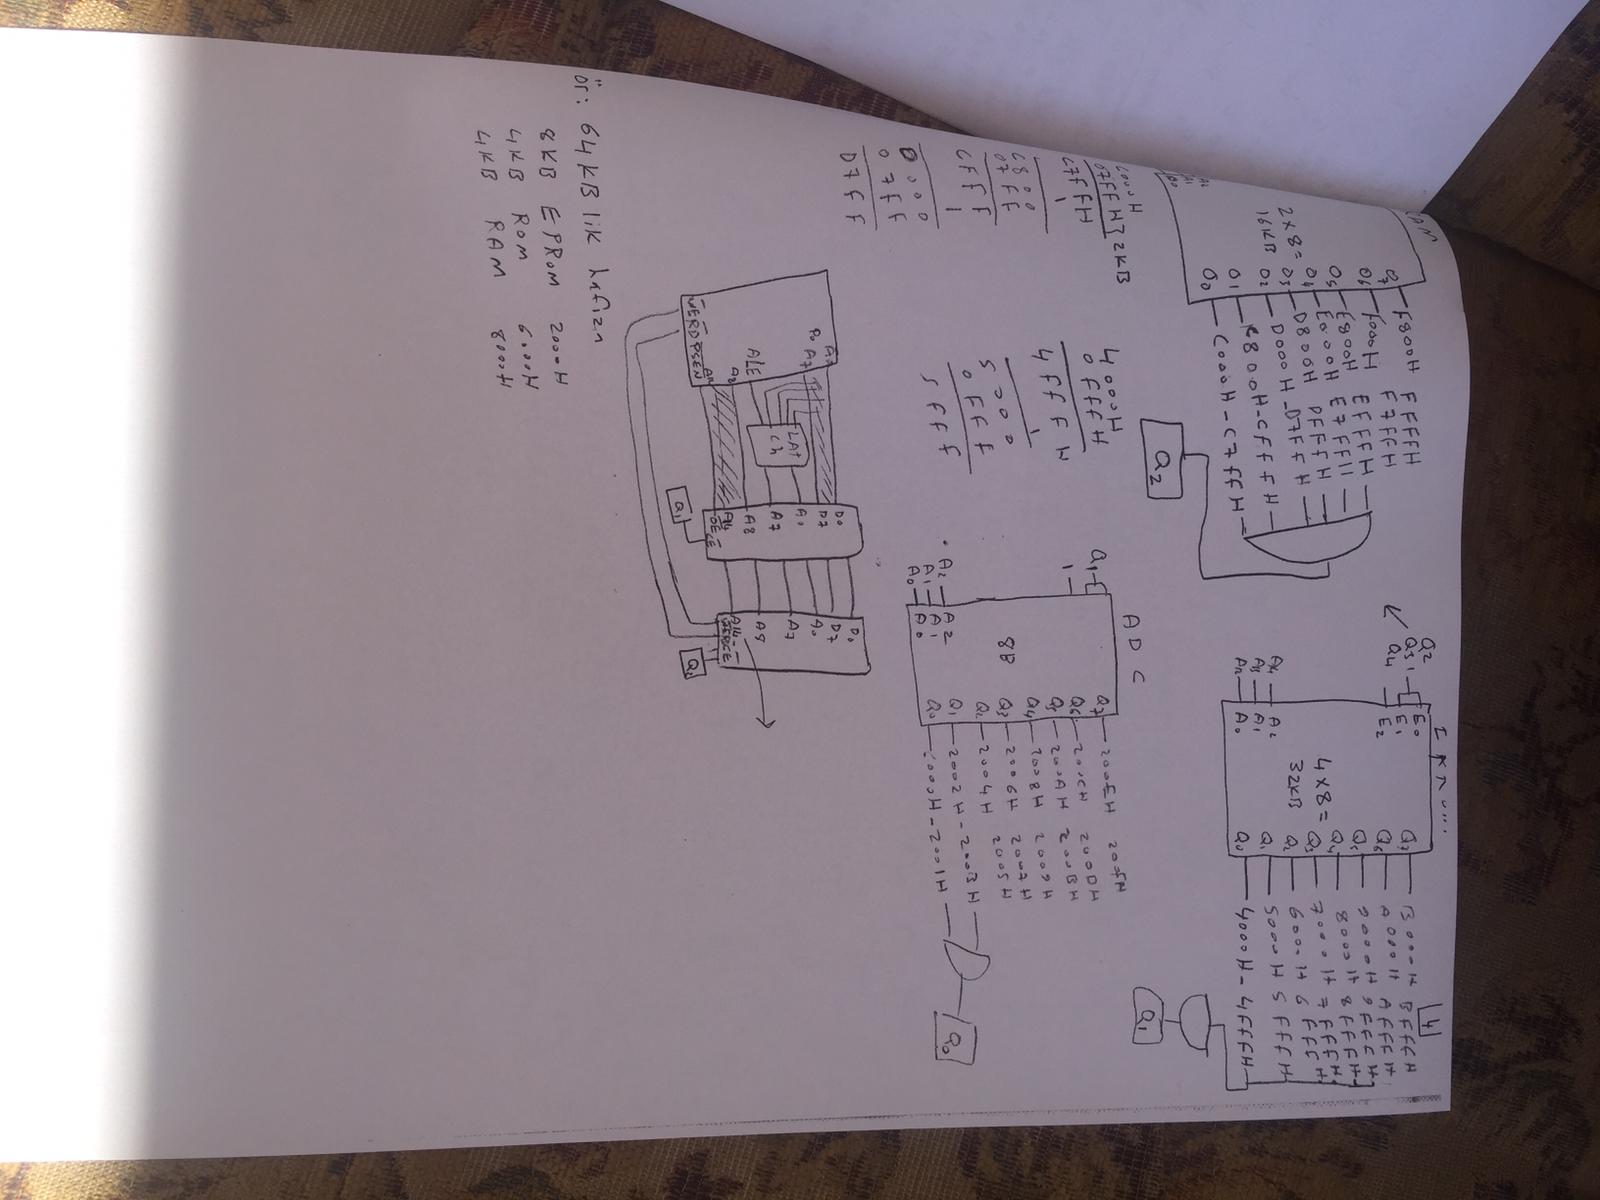 O7 F800H FFFFH
O6 F000H F7FFH
O5 E800H EFFFH
O4 E000H E7FFH
2x8= O3 D800H DFFFH
16KB O2 D000H - D7FFH
O1 C800H - CFFFH
O0 C000H - C7FFH
A2
A1
A0
Q2
4
Q2 E0 Q7 B000H BFFFH
Q3 1 E1 Q6 A000H AFFFH
Q4 E2 Q5 9000H 9FFFH
Q4 8000H 8FFFH
4x8= Q3 7000H 7FFFH
32KB Q2 6000H 6FFF
A2 Q1 5000H 5FFFH
A13 A1
A0 Q0 4000H - 4FFFH
Q1
C000H
07FFH } 2KB
C7FFH
1
C800
07FF
CFFF
1
D000
07FF
D7FF
4000H
0FFFH
4FFFH
1
5000
0FFF
5FFF
ADC
Q1 Q7 200EH 200FH
1 Q6 200CH 200DH
Q5 200AH 200BH
Q4 2008H 2009H
8B Q3 2006H 2007H
Q2 2004H 2005H
A2 A2 Q1 2002H - 200BH
A1 A1 Q0 2000H - 2001H
A0 A0
Q0
P0 A7
LAt
ch
ALE
A8
WE RD PSEN
D0
D7
A0
A7
A8
A14
OE CE
Q1
D0
D7
A0
A7
A8
A14
WE RD CE
ör: 64KB lik hafıza
8KB EPRoM 2000H
4KB Rom 6000H
4KB RAM 8000H